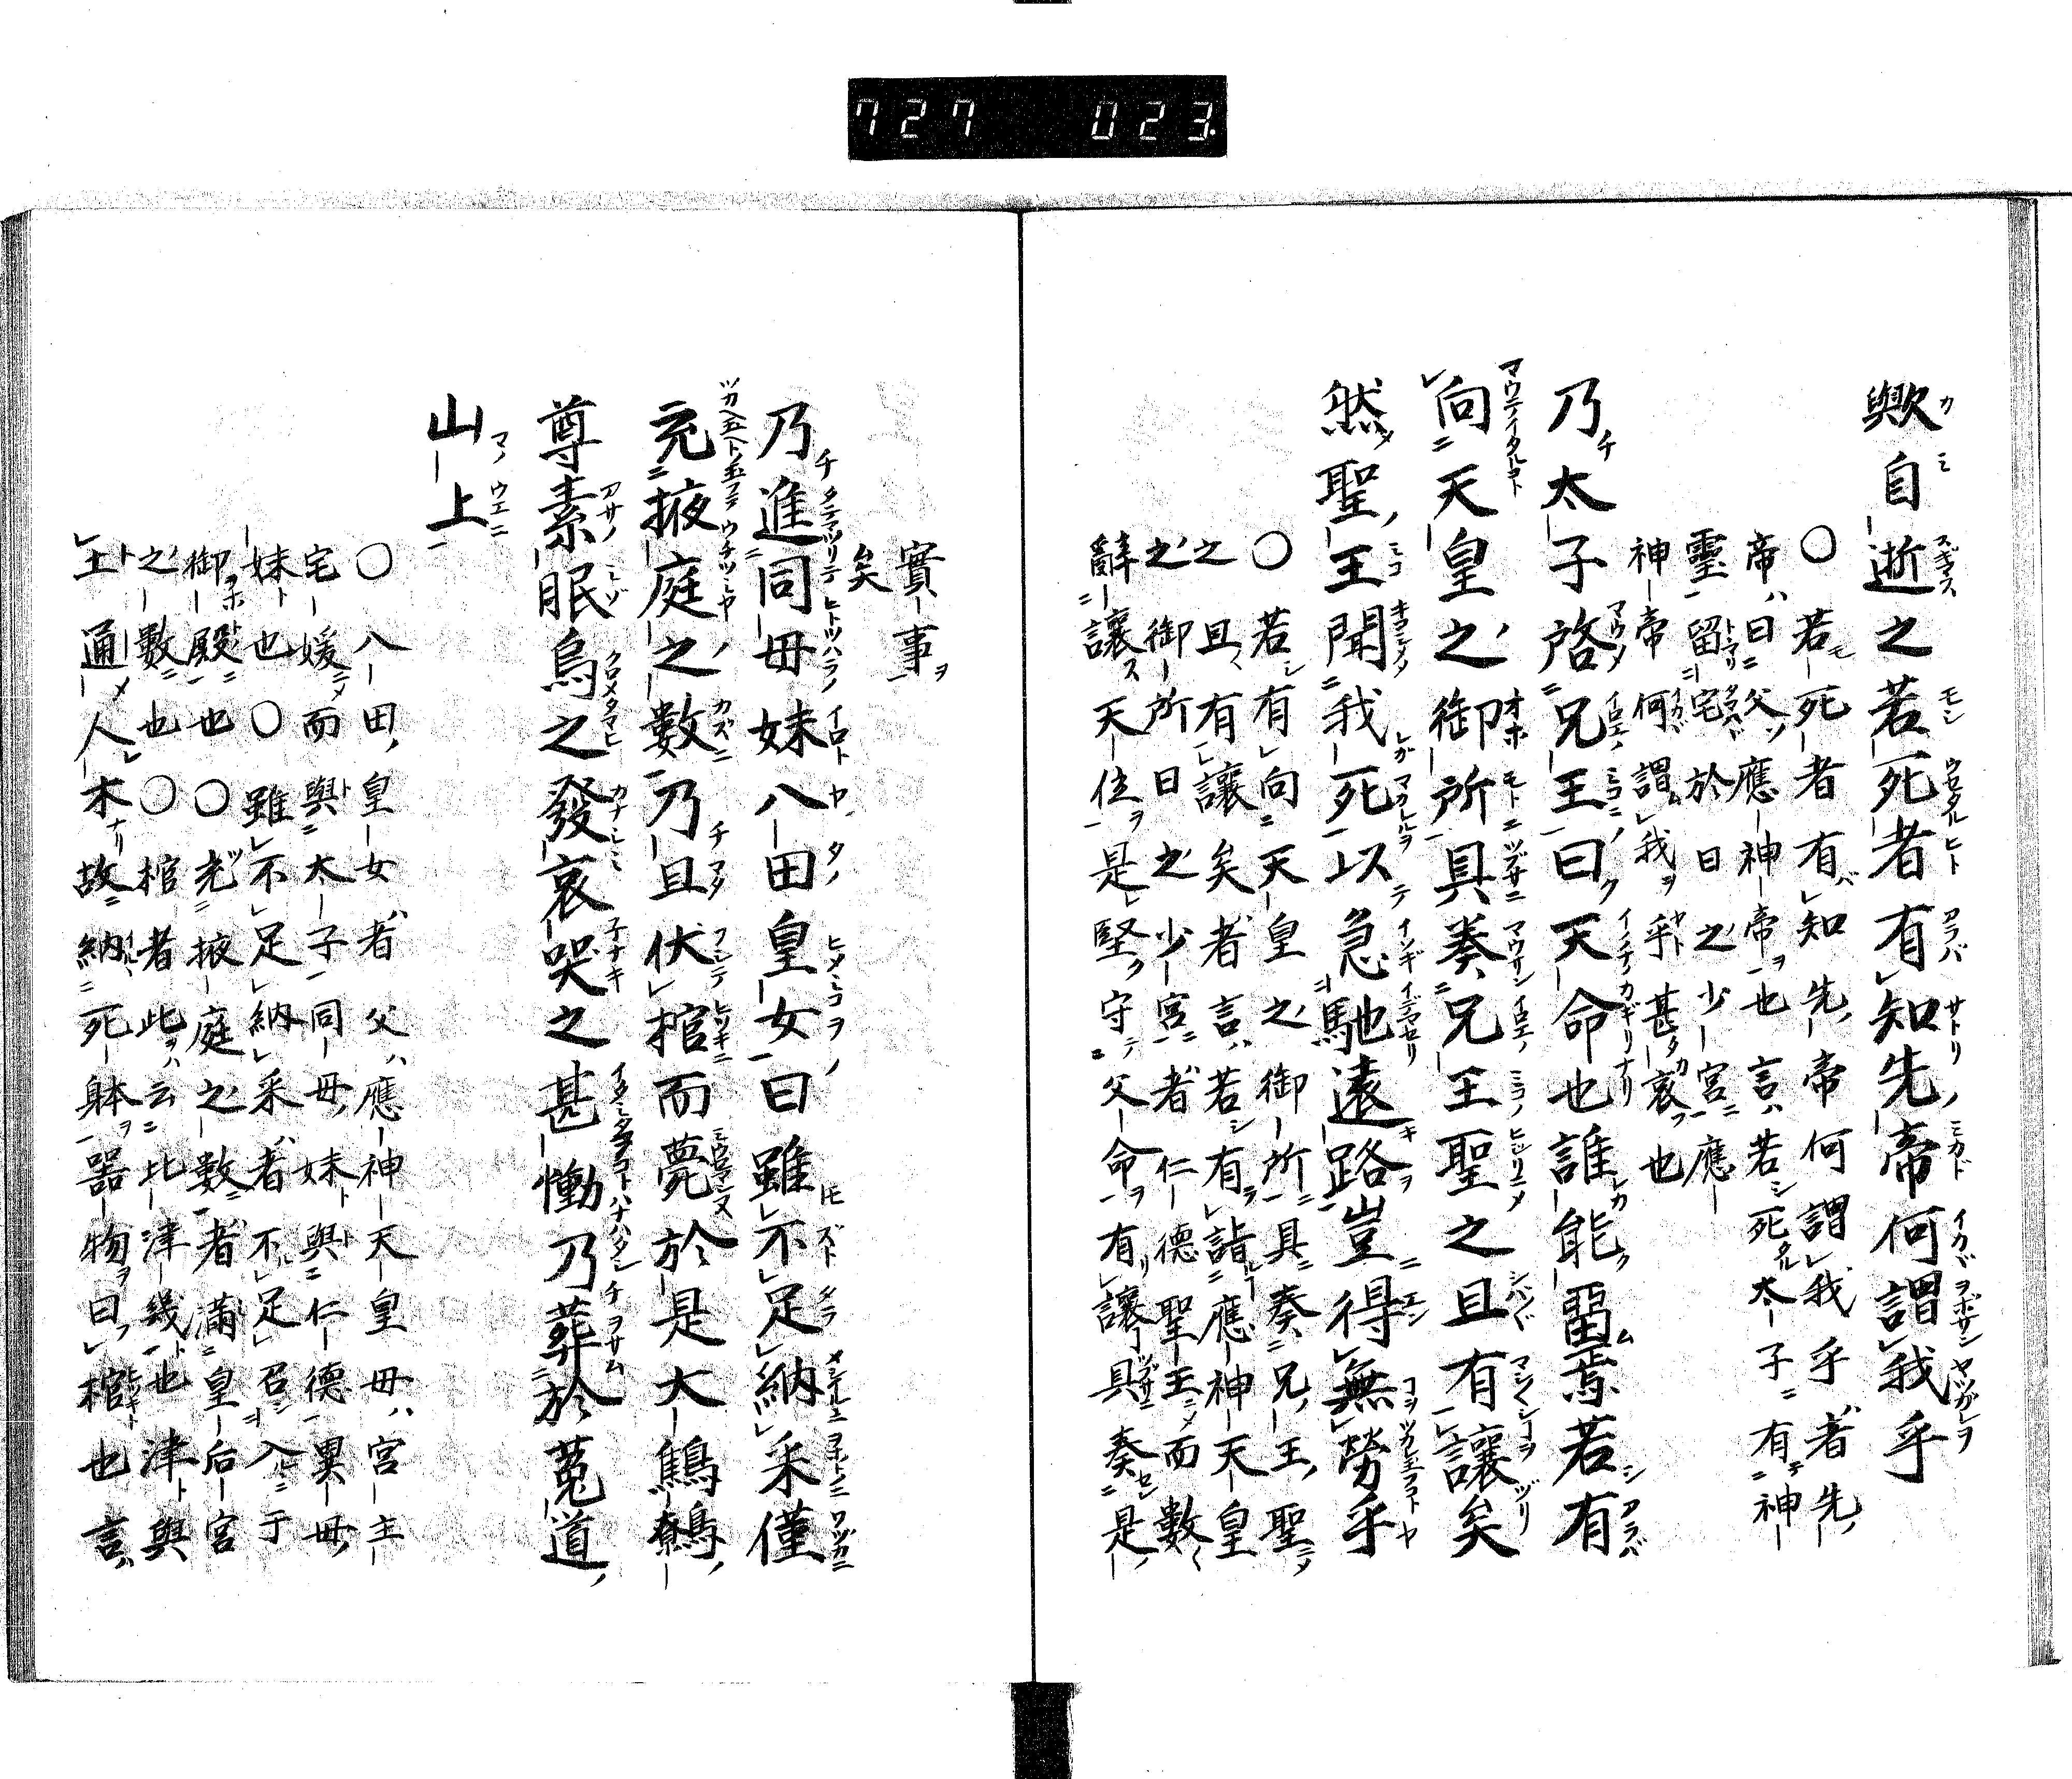 727 023
歟自逝之若死者有知先帝何謂我乎
○若死者有知先帝何謂我乎者先
帝曰父應神帝也言若死太子有神
靈留宅於日之少宮應
神帝何謂我乎甚哀也
乃太子啓兄王曰天命也誰能留焉若有
向天皇之御所具奏兄王聖之且有讓矣
然聖王聞我死以急馳遠路豈得無勞乎
○若有向天皇之御所具奏兄王聖
之且有讓矣者言若有詣應神天皇
之御所日之少宮者仁德聖王而數
辭讓天位是堅守父命有讓具奏是
實事
矣
乃進同母妹八田皇女曰雖不足納采僅
充掖庭之數乃且伏棺而薨於是大鷦鷯
尊素服為之發哀哭之甚慟乃葬於菟道
山上
○八田皇女者父應神天皇母宮主
宅媛而與太子同母妹與仁德異母
妹也○雖不足納采者不足召入于
御殿也○充掖庭之數者滿皇后宮
之數也○棺者此云比津幾也津與
土通人木故納死躰器物曰棺也言